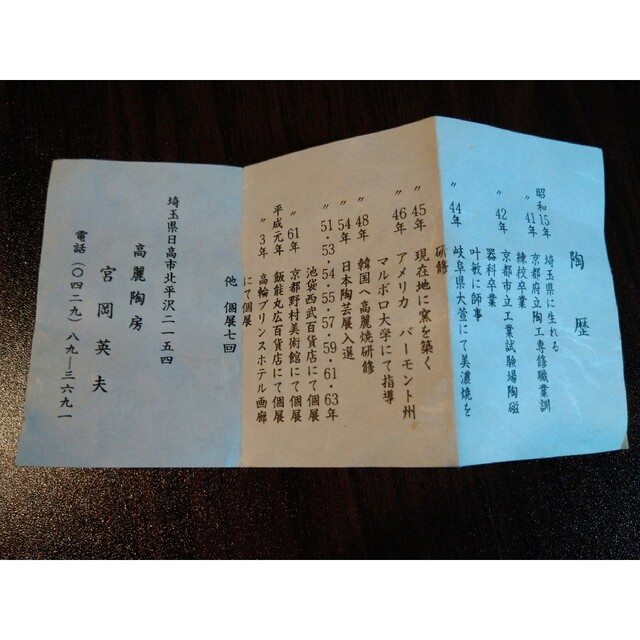 陶歴
昭和15年 埼玉県に生れる
〃 41年 京都府立陶工専修職業訓
練校卒業
〃 42年 京都市立工業試験場陶磁
器科卒業
叶敏に師事
〃 44年 岐阜県大萱にて美濃焼を
研修
〃 45年 現在地に窯を築く
〃 46年 アメリカ バーモント州
マルボロ大学にて指導
〃 48年 韓国へ高麗焼研修
〃 54年 日本陶芸展入選
〃 51・53・54・55・57・59・61・63年
池袋西武百貨店にて個展
〃 61年 京都野村美術館にて個展
平成元年 飯能丸広百貨店にて個展
〃 3年 高輪プリンスホテル画廊
にて個展
他 個展七回
埼玉県日高市北平沢二一五四
高麗陶房
宮岡英夫
電話(〇四二九)八九―三六九一